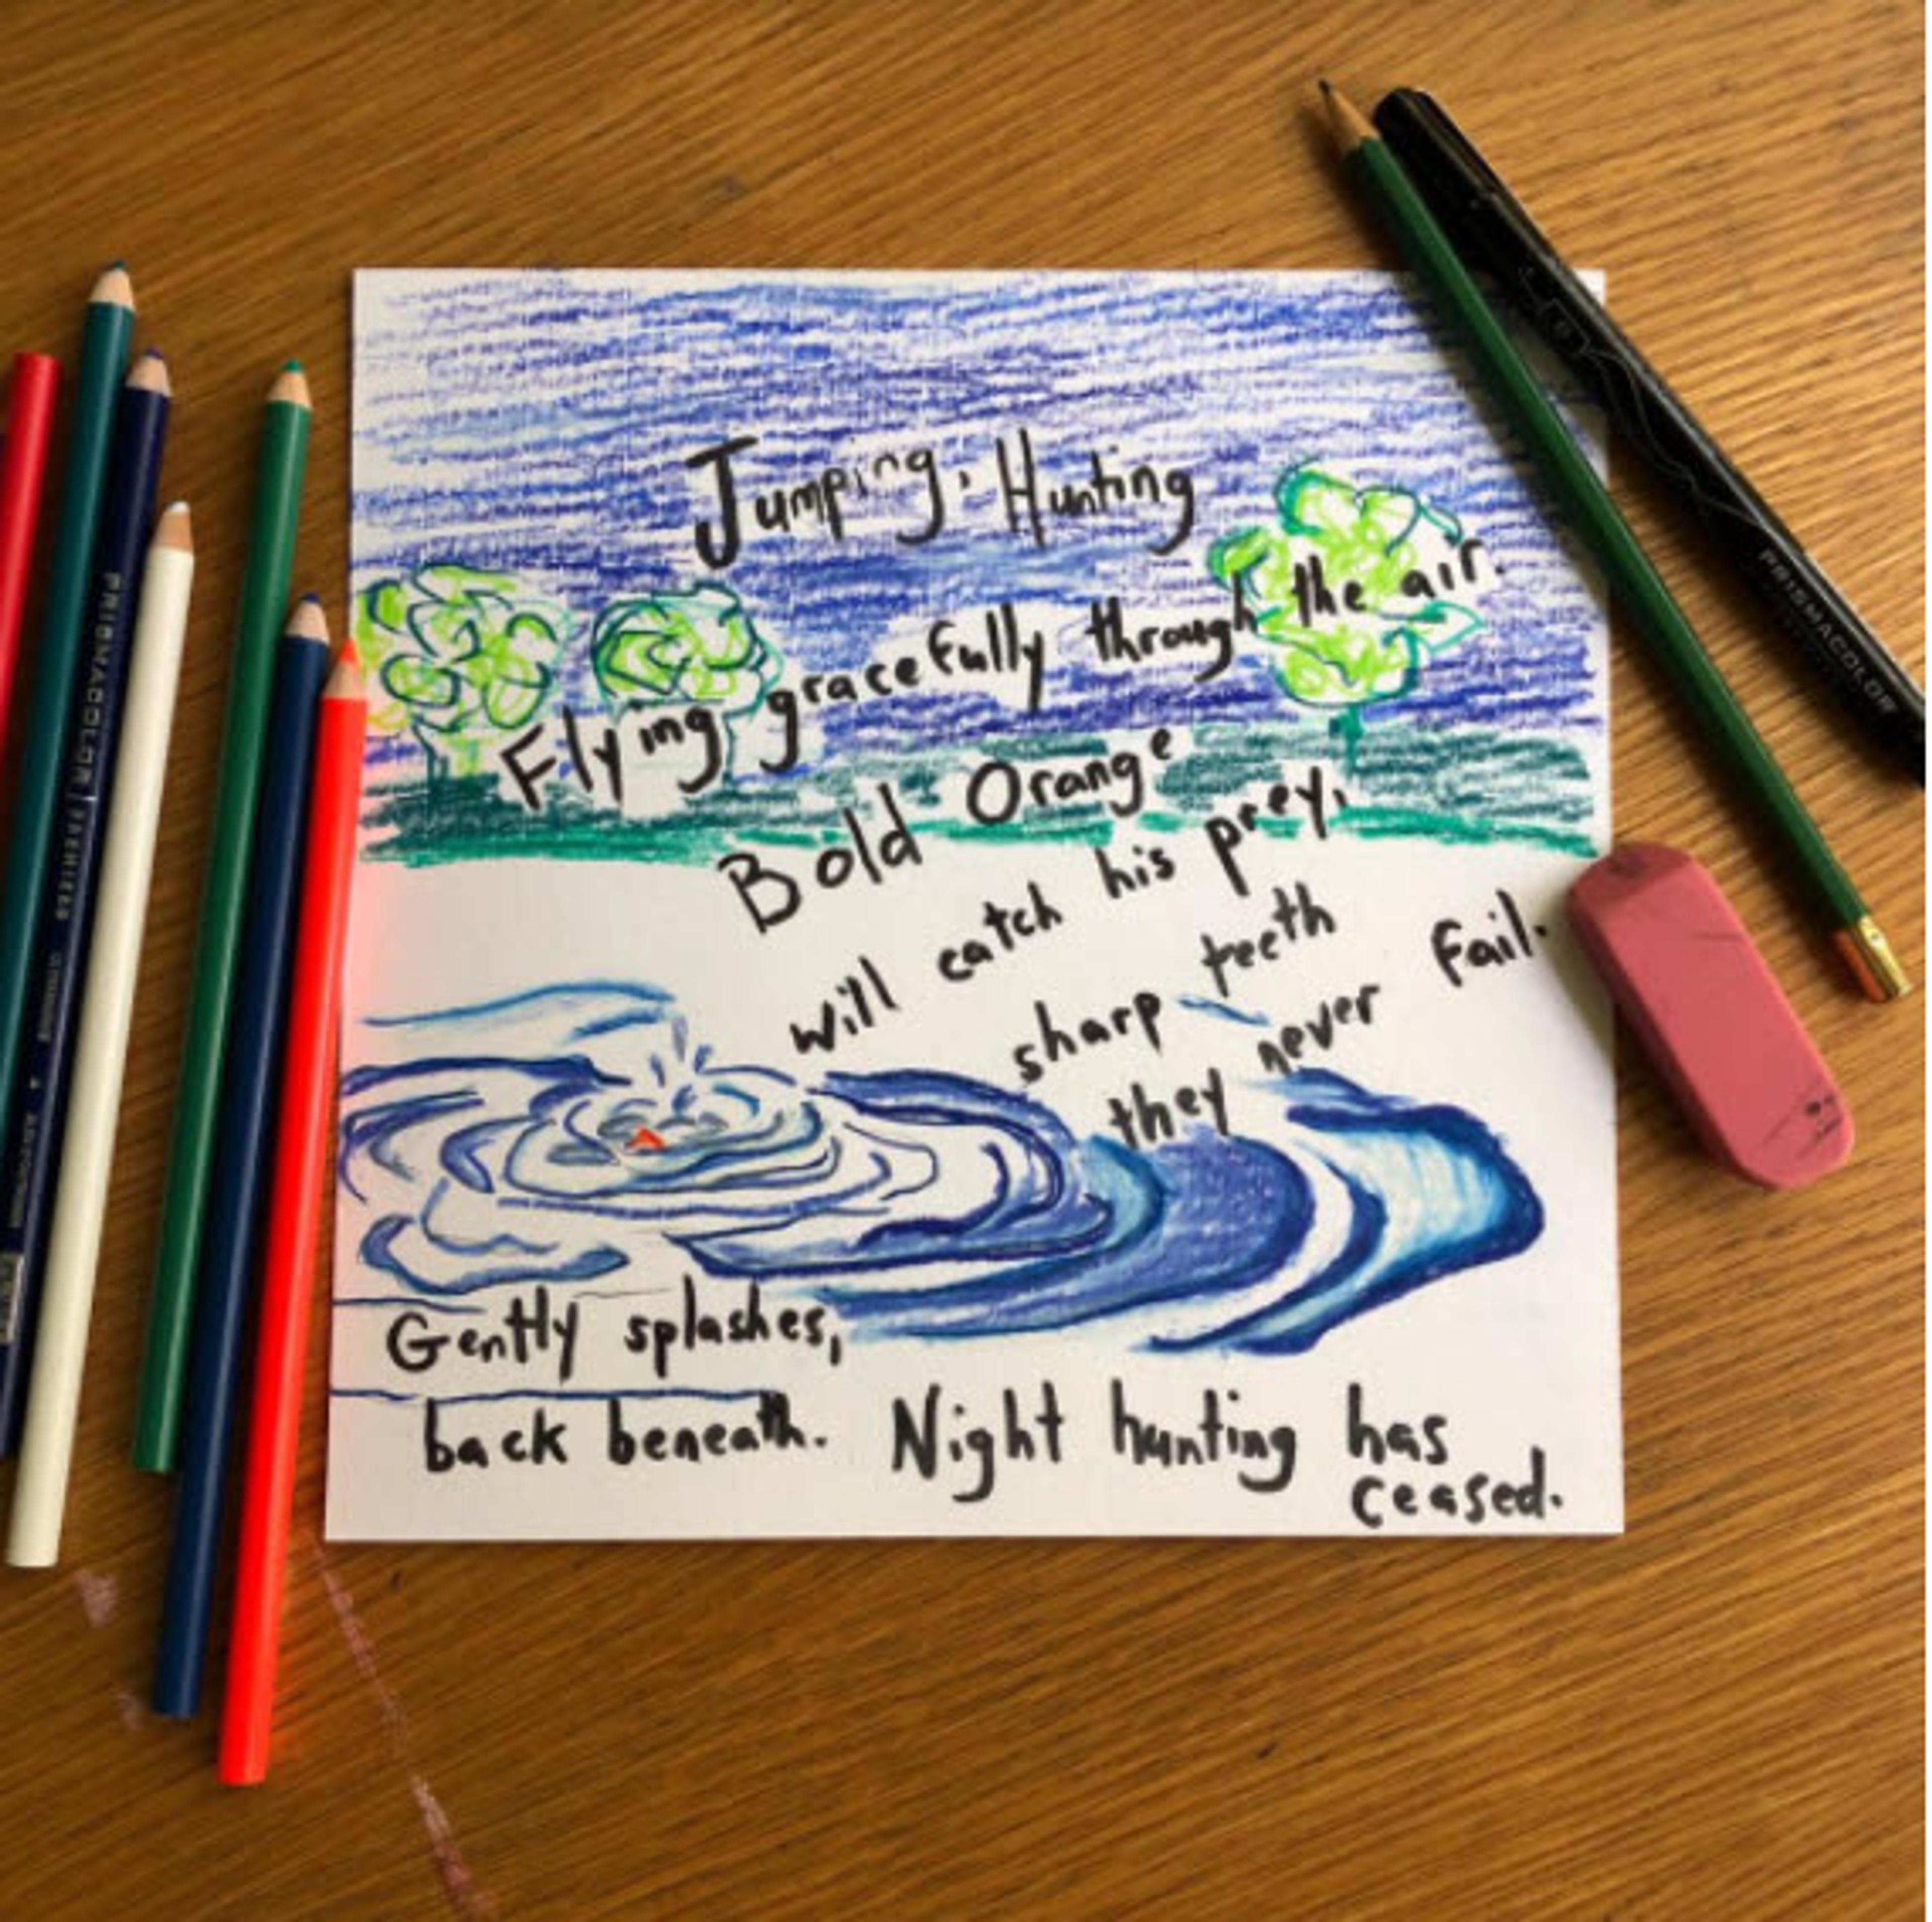 Jumping, Hunting
Flying gracefully through the air.
Bold Orange
will catch his prey,
sharp teeth
they never fail.
Gently splashes,
back beneath. Night hunting has
ceased.
PRISMACOLOR
PRISMACOLOR